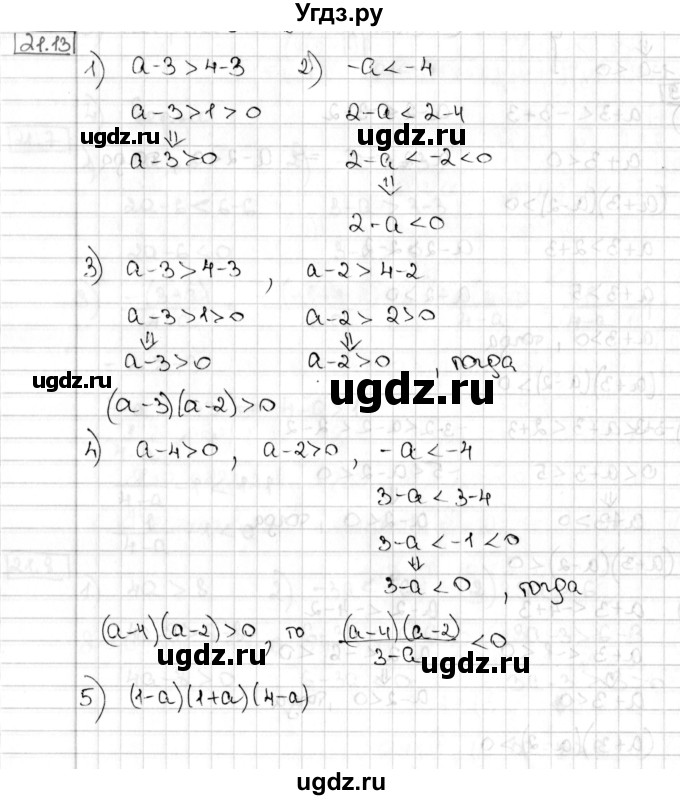 Угдз.ру
21.13
1) a-3>4-3 2) -a<-4
a-3>1>0 2-a<2-4
ugdz.ru ⇓ 2-a<-2<0
a-3>0 ⇓
2-a<0
3) a-3>4-3 , a-2>4-2
a-3>1>0 a-2>2>0
⇓ ⇓
a-3>0 a-2>0 , тогда
ugdz.ru ugdz.ru
(a-3)(a-2)>0
4) a-4>0, a-2>0, -a<-4
3-a<3-4
3-a<-1<0
⇓
3-a<0 , тогда
(a-4)(a-2)>0, то (a-4)(a-2)/3-a <0
ugdz.ru ugdz.ru
5) (1-a)(1+a)(4-a)
ugdz.ru